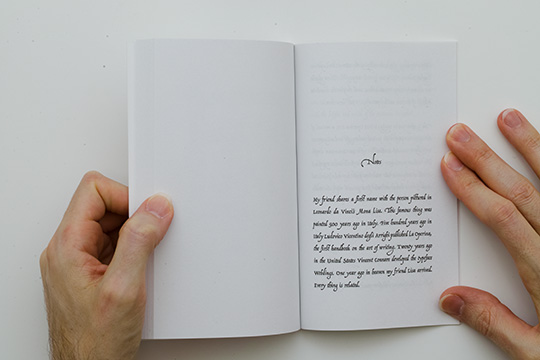 Notes
My friend shares a first name with the person pictured in
Leonardo da Vinci's Mona Lisa. This famous thing was
painted 500 years ago in Italy. Five hundred years ago in
Italy Ludovico Vicentino degli Arrighi published La Operina,
the first handbook on the art of writing. Twenty years ago
in the United States Vincent Connare developed the typeface
Webdings. One year ago in heaven my friend Lisa arrived.
Every thing is related.